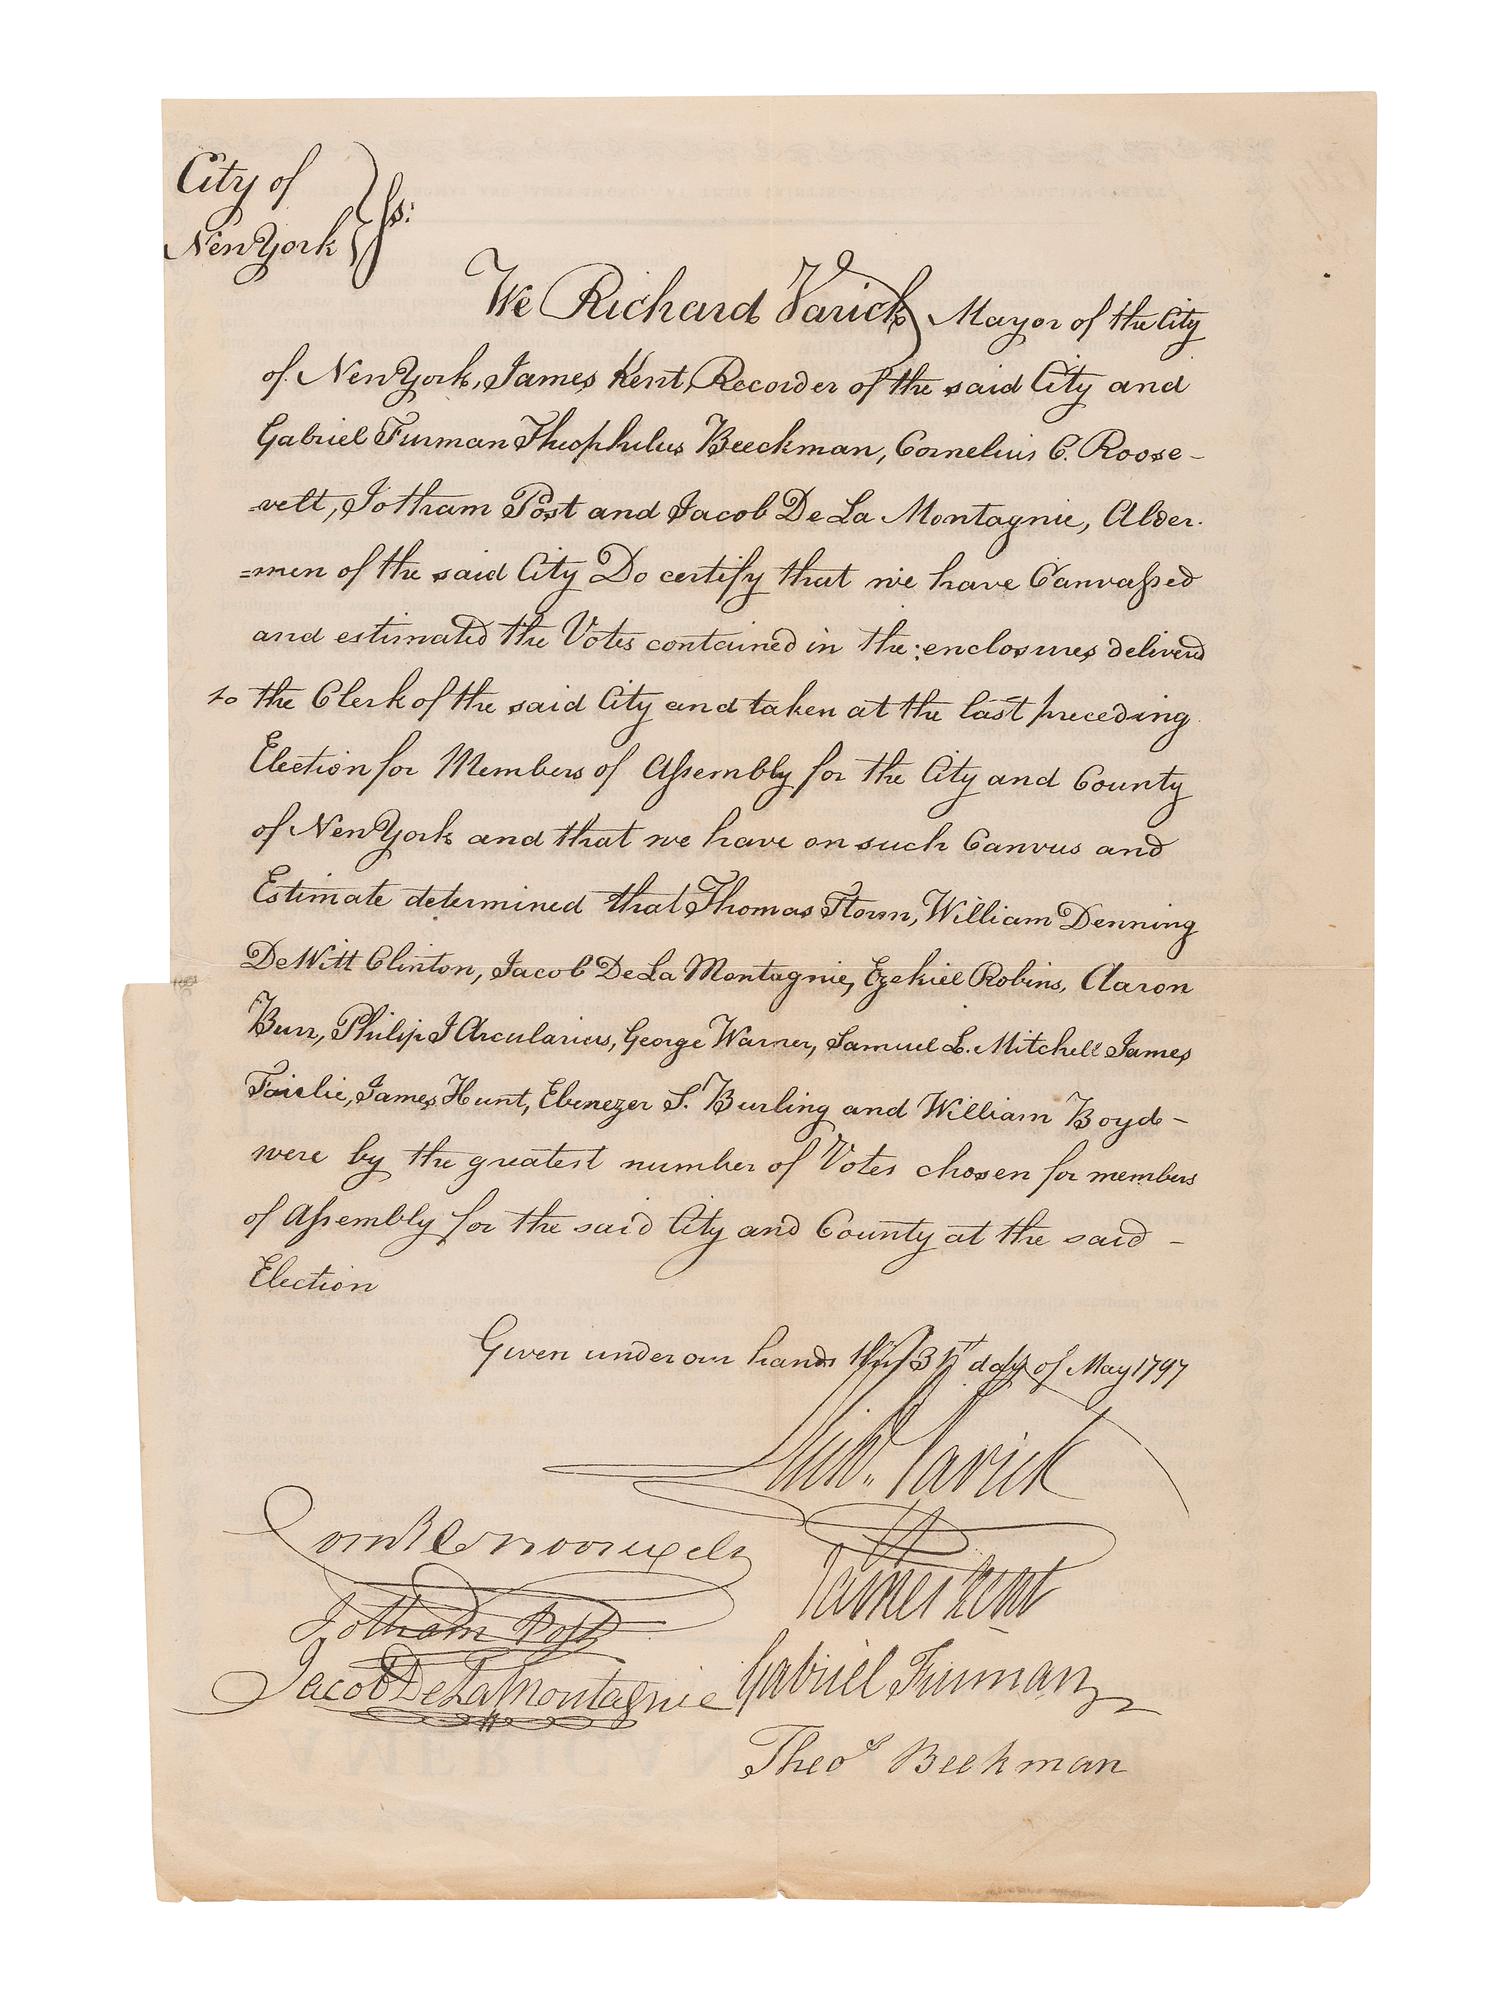 City of
New York } ss:
We Richard Varick Mayor of the City
of New York, James Kent, Recorder of the said City and
Gabriel Furman Theophilus Beeckman, Cornelius C. Roose-
velt, Jotham Post and Jacob De La Montagnie, Alder.
=men of the said City Do certify that we have Canvassed
and estimated the Votes contained in the enclosures deliverd
to the Clerk of the said City and taken at the last preceding
Election for Members of Assembly for the City and County
of New York and that we have on such Canvus and
Estimate determined that Thomas Storm, William Denning
De Witt Clinton, Jacob De La Montagnie, Ezekiel Robins, Aaron
Burr, Philip I Arcularius, George Warner, Samuel L. Mitchell James
Fairlie, James Hunt, Ebenezer S. Burling and William Boyd -
were by the greatest number of Votes chosen for members
of Assembly for the said City and County at the said -
Election
Given under our hands this 31st day of May 1797
Richd. Varick
James Kent
Jotham Post
Jacob De La Montagnie
Gabriel Furman
Theos Beekman